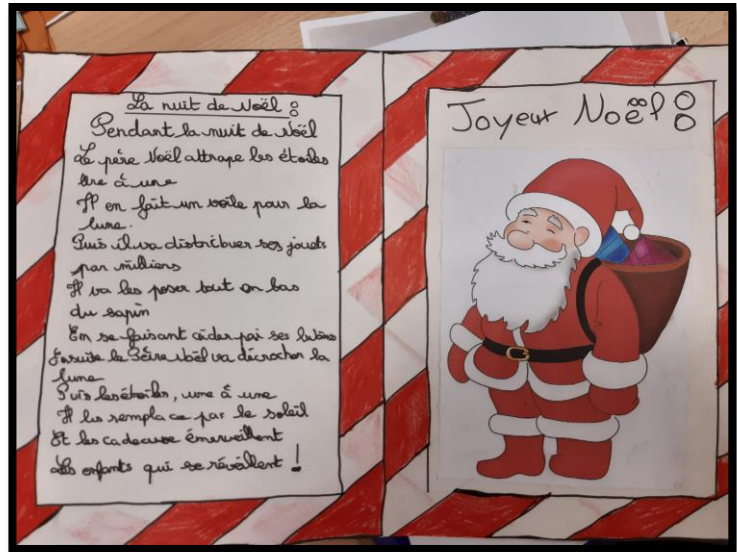 La nuit de Noël :
Pendant la nuit de Noël
Le père Noël attrape les étoiles
une à une
Il en fait un voile pour la
lune.
Puis il va distribuer ses jouets
par milliers
Il va les poser tout en bas
du sapin
En se faisant aider par ses lutins
Ensuite le Père Noël va décrocher la
lune
Puis les étoiles, une à une
Il les remplace par le soleil
Et les cadeaux émerveillent
Les enfants qui se réveillent !
Joyeux Noël :